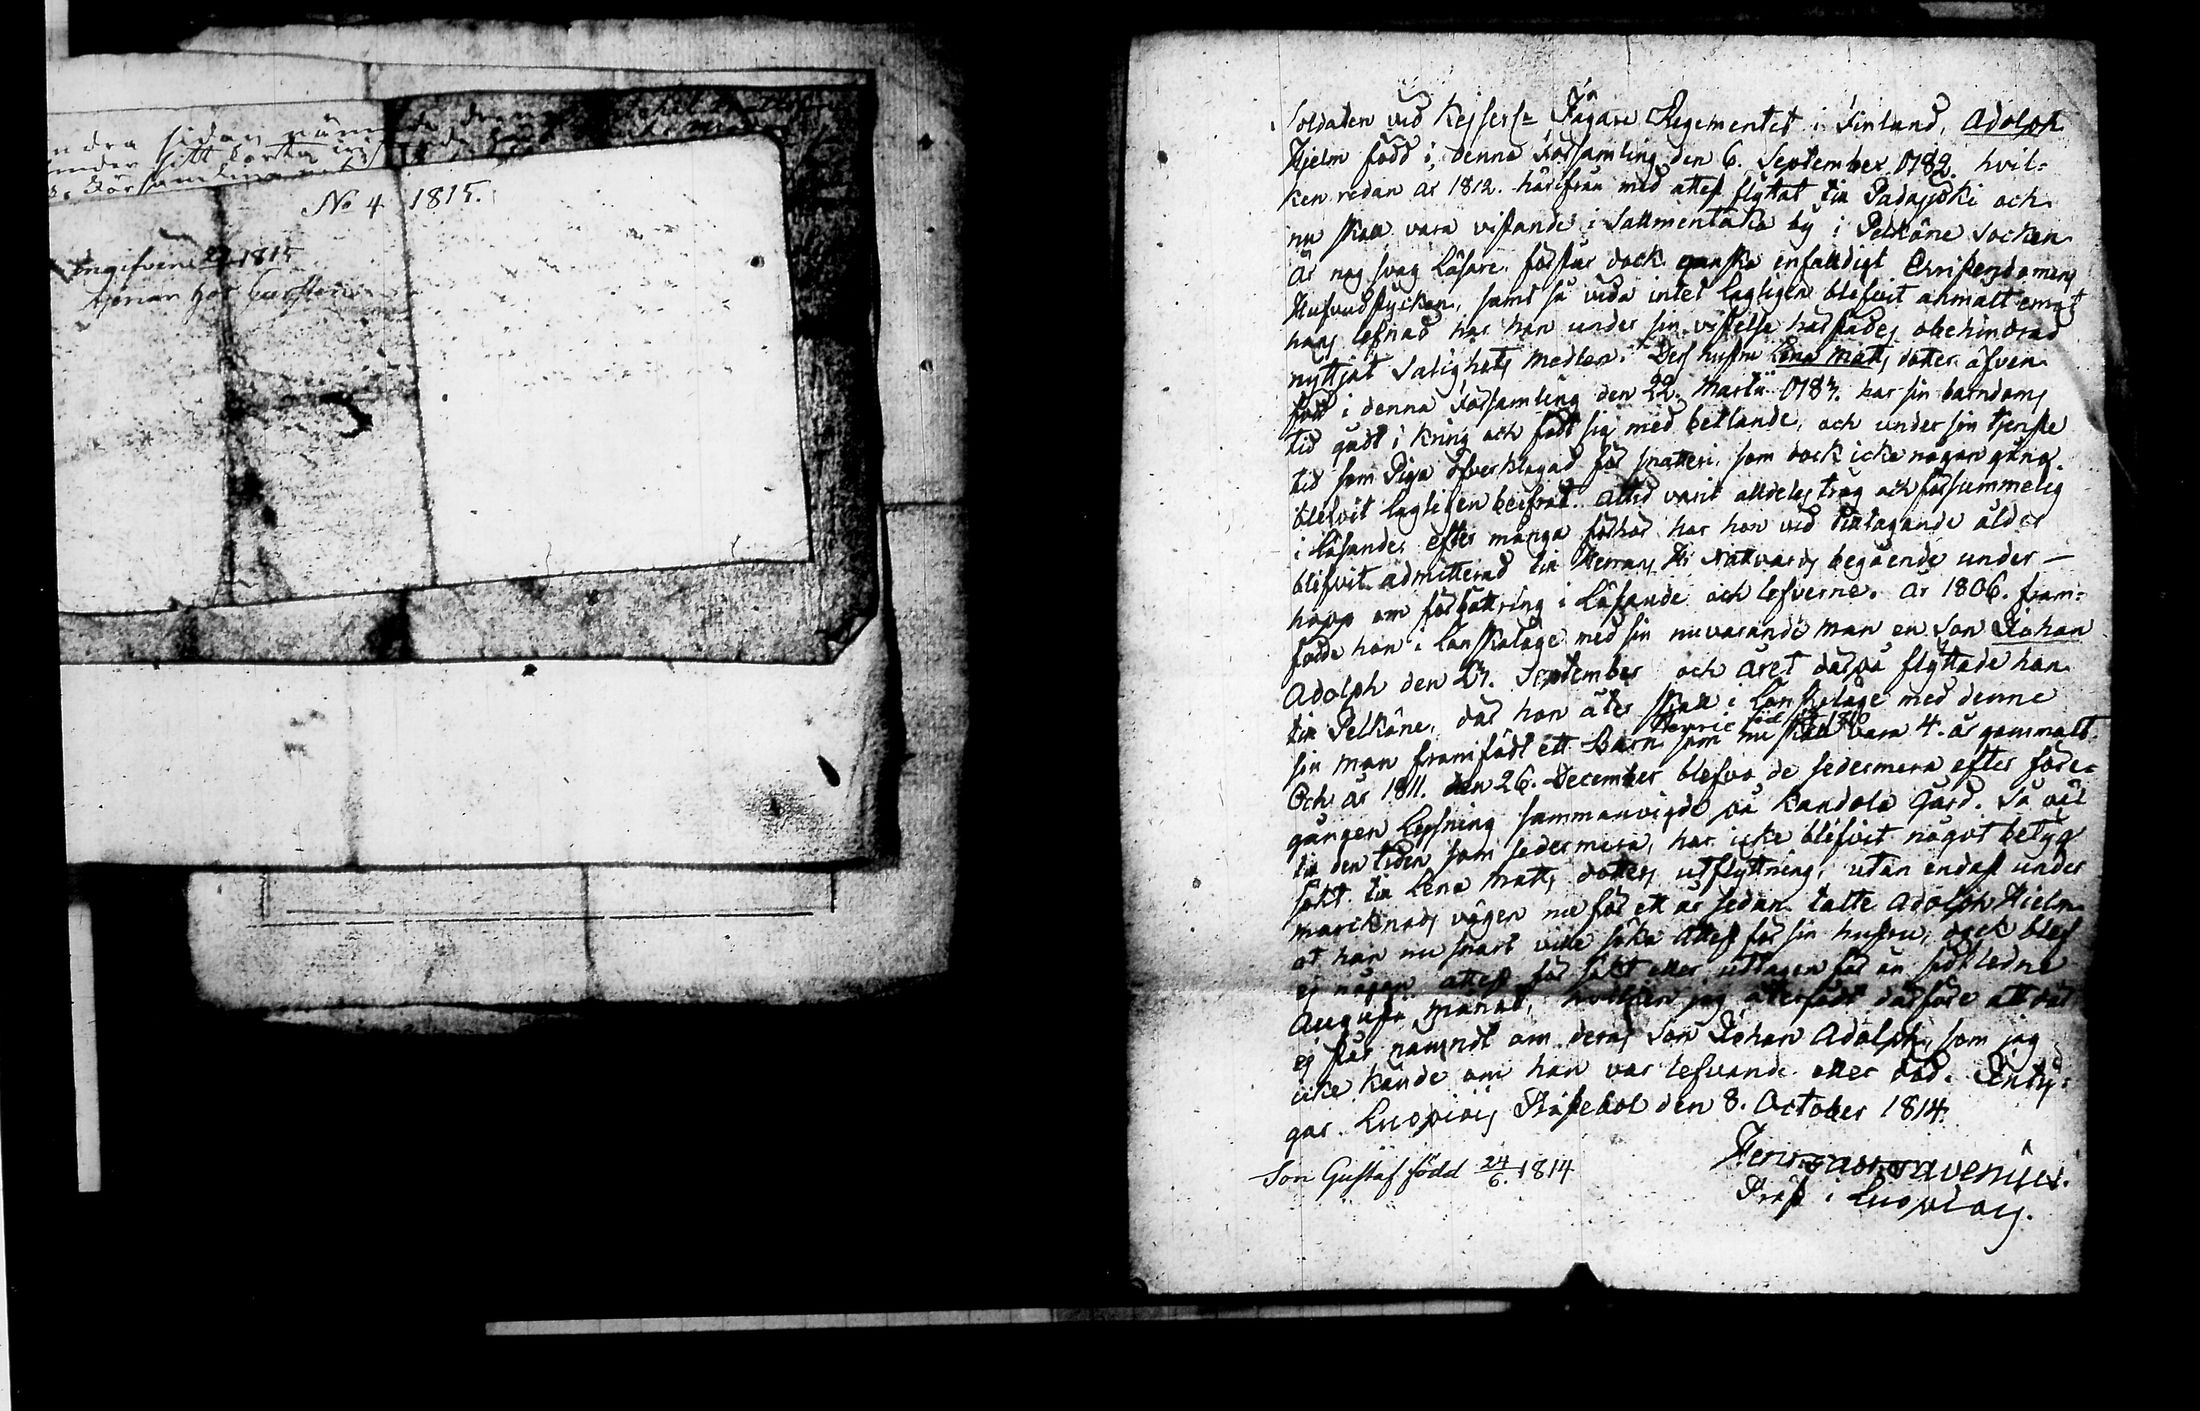 ndra sidan nämnde dreng
under sitt korta
Församling
No 4 1815.
Ingifven 1815
tjenar hos
Soldaten vid Kejserl= Jägare Regementet i Finland, Adolph
Hjelm född i denna Församling den 6. September 1782. hvil=
ken redan år 1812. härifrån med attest flyttat till Padasjoki och
nu skall vara vistande i Salmentaka by i Pelkäne Socken
Är nog svag läsare, förstår dock ganska enfaldigt Christendomens
Hufvudstycken, samt så vida intet lagligen blifvit anmält emot
hans lefnad har han under sin vistelse härstädes obehindrad
nyttjat Salighets medlen. Dess hustru Lena Matts dotter äfven
född i denna Församling den 22. Martii 1787. har sin barndoms
tid gådt i kring och födt sig med betlande, och under sin tjenste
tid som Piga öfverklagad för snatteri, som dock icke någon gång
blifvit lagligen beifrat. Altid varit alldeles trög och försummelig
i läsande, efter många förhör har hon vid tilltagande ålder
blifvit admitterad till Herrans H: Nattvards begående under
hopp om förbättring i Läsande och lefverne. År 1806. fram=
födde hon i Lönskaläge med sin nuvarande man en Son Johan
Adolph den 27. September och året därpå flyttade hon
till Pelkäne, där hon åter skall i Lönskaläge med denne
Henric född 1810
sin man framfödt ett Barn som nu skall vara 4. år gammalt.
Och år 1811. den 26. December blefvo de sedermera efter före=
gången Lysning sammanvigde på Kandola Gård. Så väl
till den tiden som sedermera, har icke blifvit något betyg
sökt till Lena Matts dotters utflyttning, utan endast under
marcknads vägen nu för ett år sedan talte Adolph Hielm
at han nu snart ville söka Attest för sin hustru, dock blef
ej någon attest för sökt eller uttagen för än sidstledne
Augusti månad, hvilken jag återfådt därföre att dät
ej står nämndt om deras Son Johan Adolph, som jag
icke kände om han var lefvande eller död. Bety=
gar Luopiois Prästebol den 8. October 1814.
Präst i Luopiois.
Son Gustaf född 24/6. 1814